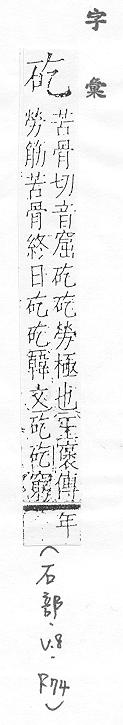 字彙
矻
苦骨切音窟矻矻勞極也王褒傳
勞筋苦骨終日矻矻韓文矻矻窮
年
(石部·V.8·R74)